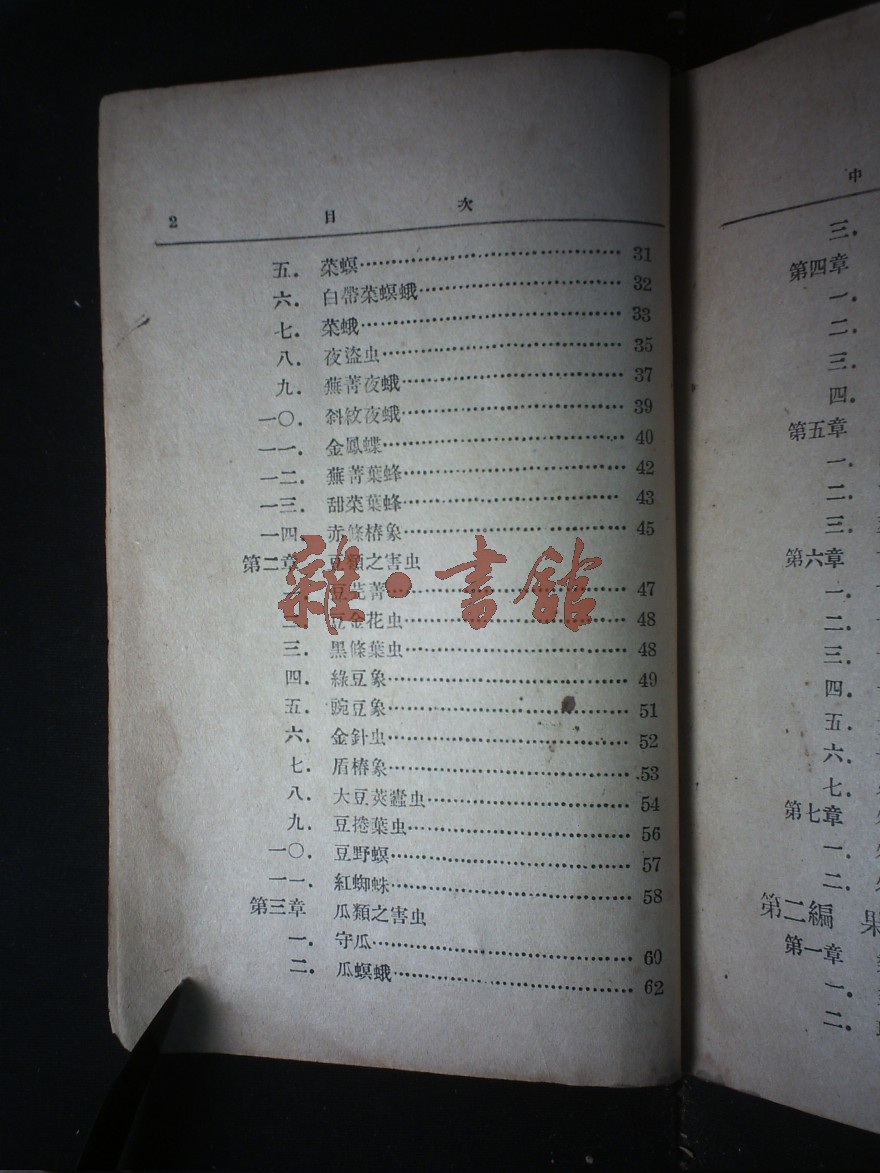 2 目 次
五. 菜螟 31
六. 白帶菜螟蛾 32
七. 菜蛾 33
八. 夜盜虫 35
九. 蕪菁夜蛾 37
一〇. 斜紋夜蛾 39
一一. 金鳳蝶 40
一二. 蕪菁葉蜂 42
一三. 甜菜葉蜂 43
一四. 赤條椿象 45
第二章 豆類之害虫
一. 豆芫菁 47
二. 豆金花虫 48
三. 黑條葉虫 48
四. 綠豆象 49
五. 豌豆象 51
六. 金針虫 52
七. 盾椿象 53
八. 大豆莢蠹虫 54
九. 豆捲葉虫 56
一〇. 豆野螟 57
一一. 紅蜘蛛 58
第三章 瓜類之害虫
一. 守瓜 60
二. 瓜螟蛾 62
雜·書館
中
三.
第四章
一.
二.
三.
四.
第五章
一.
二.
三.
第六章
一.
二.
三.
四.
五.
六.
七.
第七章
一.
二.
第二編
第一章
一.
二.